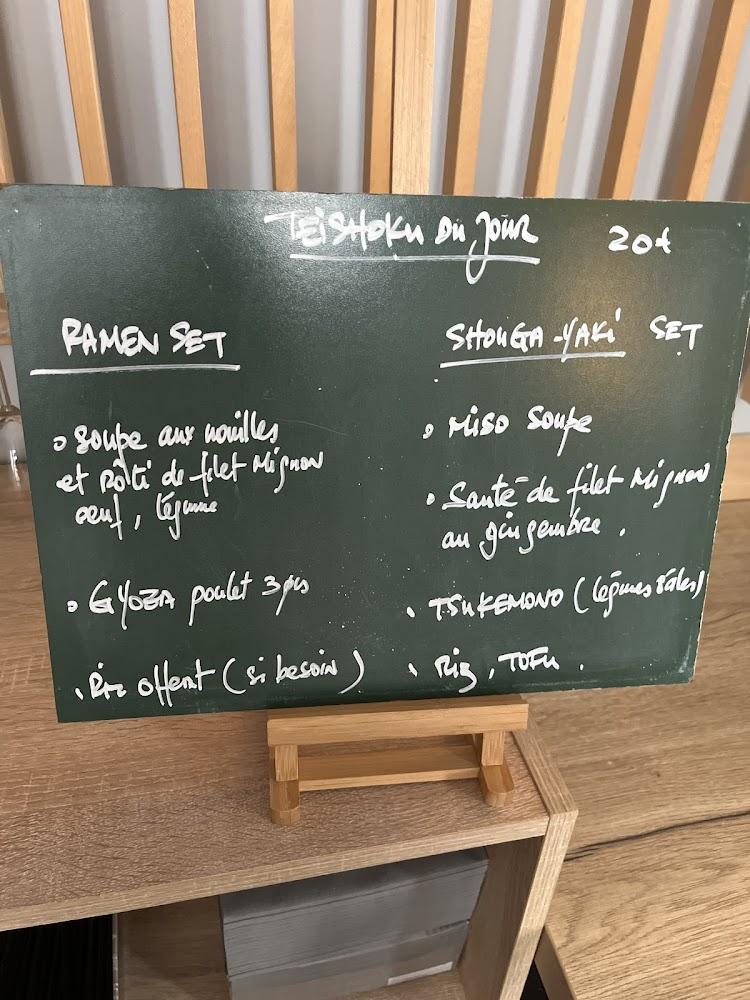 TEiSHOKU DU JOUR 20€
RAMEN SET
• Soupe aux nouilles
et rôti de filet Mignon
oeuf, légume
• GYOZA poulet 3 pcs
• Riz offert (si besoin)
SHOUGA-YAKi SET
• Miso Soupe
• Sauté de filet Mignon
au gingembre.
• TSUKEMONO (légumes salés)
• Riz, TOFU.